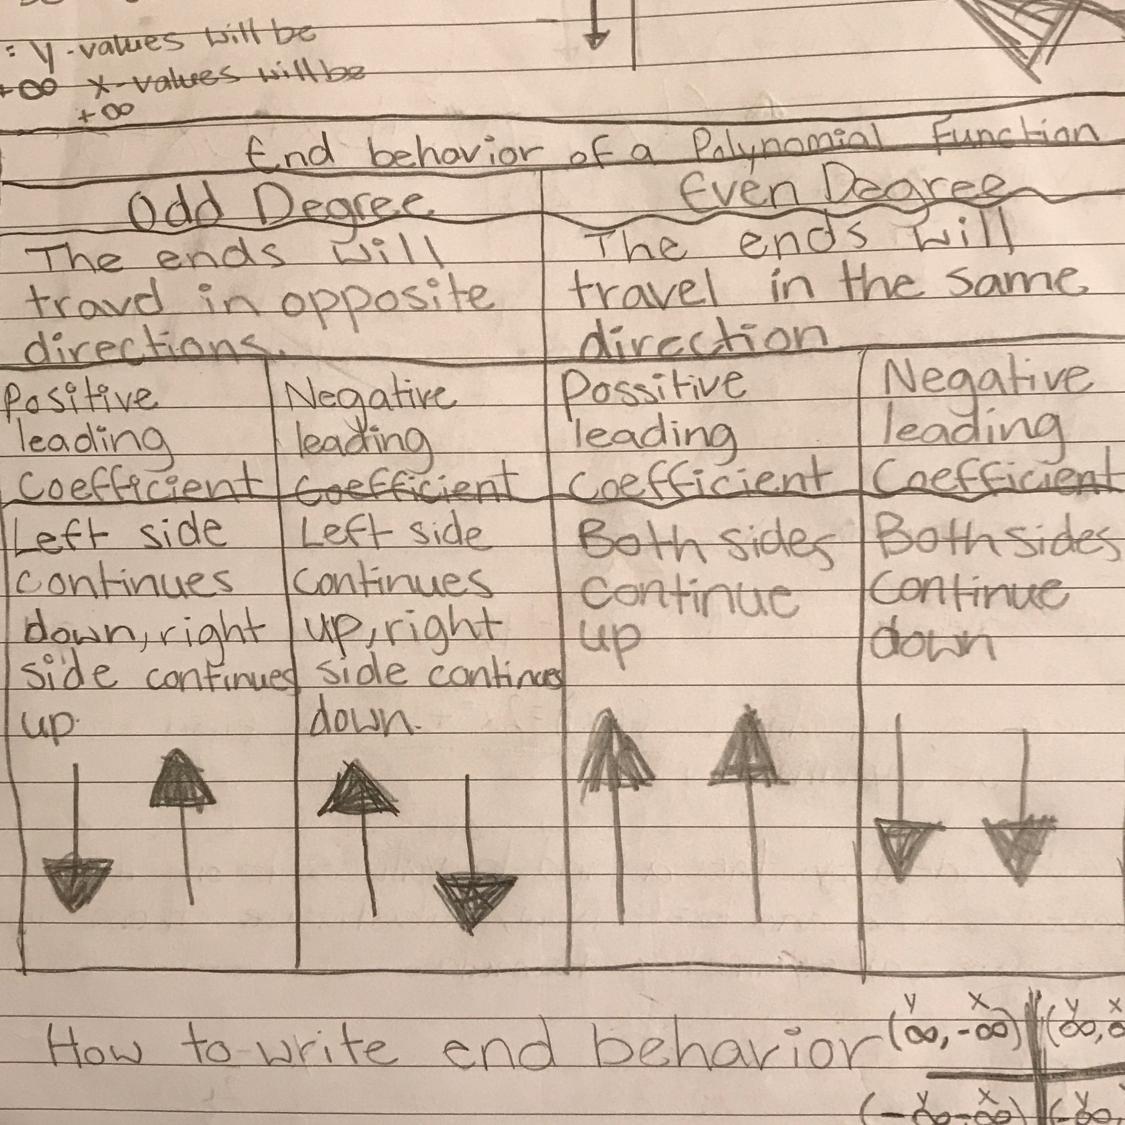 : y-values will be
+∞ x-values will be
+∞
End behavior of a Polynomial Function
Odd Degree
Even Degree
The ends will
travel in opposite
directions.
The ends will
travel in the same
direction
Positive
leading
Coefficient
Negative
leading
Coefficient
Possitive
leading
Coefficient
Negative
leading
Coefficient
Left side
continues
down, right
side continues
up.
Left side
continues
up, right
side continues
down.
Both sides
continue
up
Both sides
continue
down
How to write end behavior
y x
(∞, -∞)
y x
(∞,
y x
(-∞, -∞)
y
(-∞,